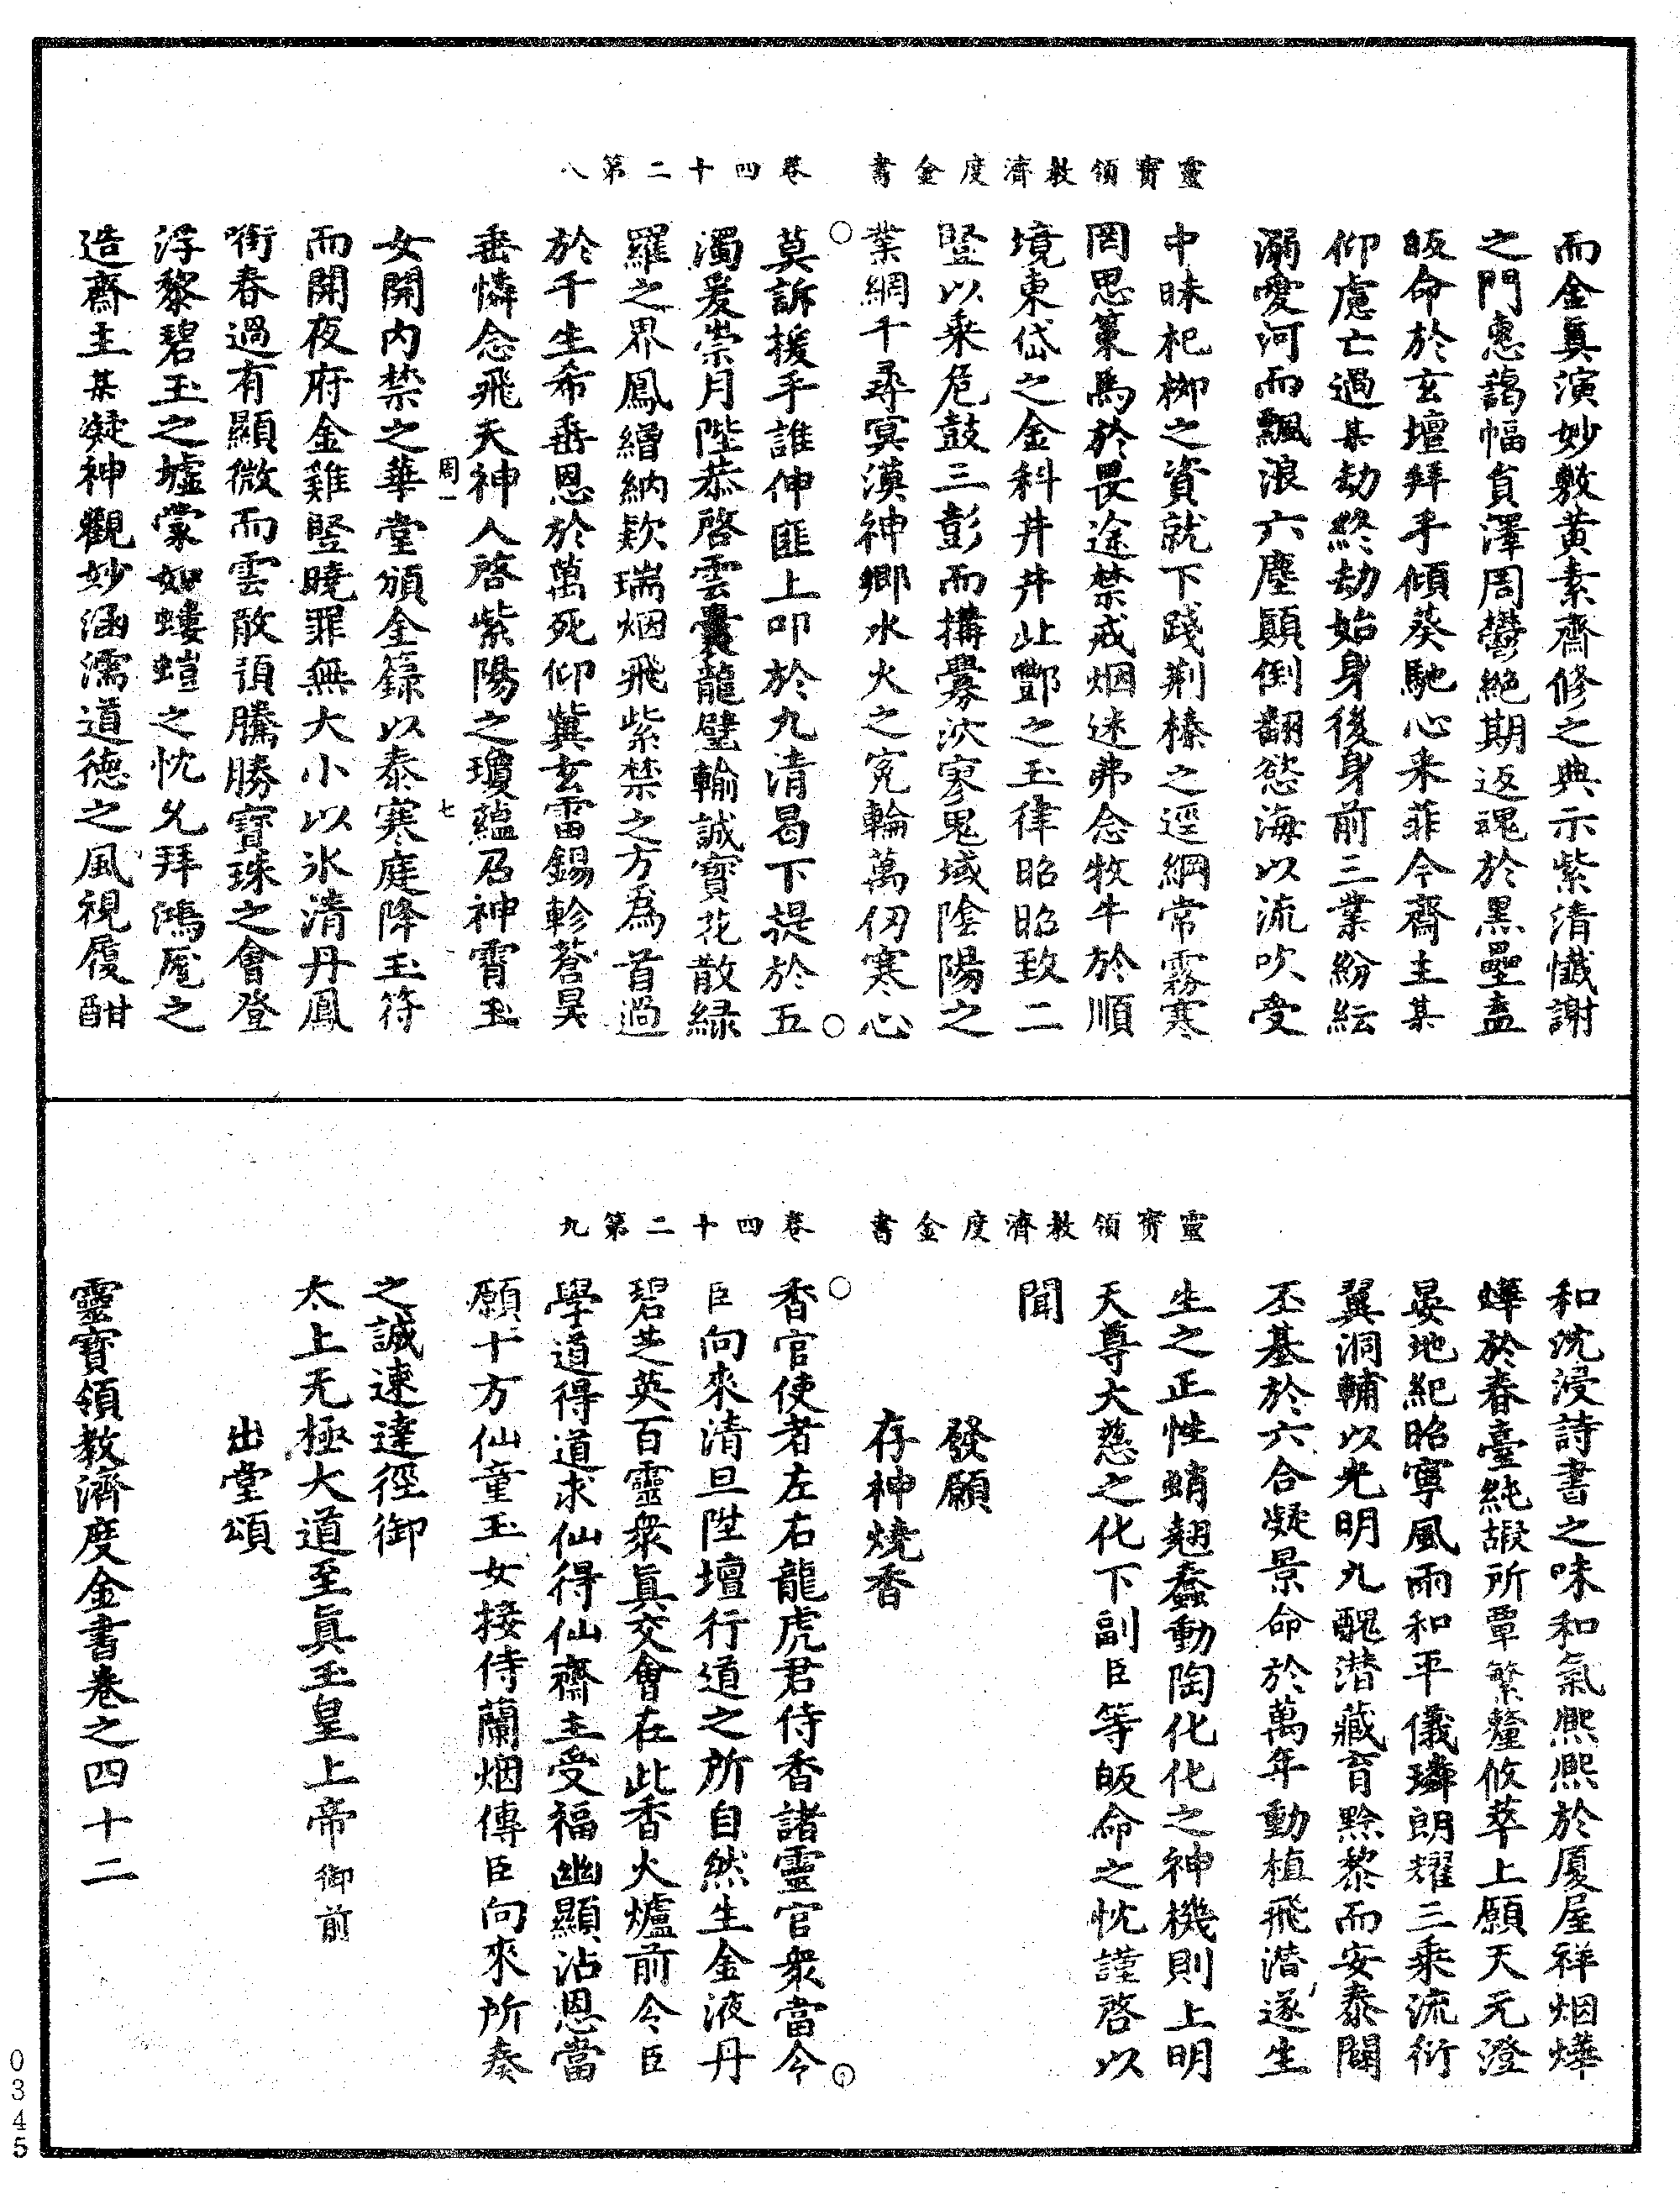 靈寶領教濟度金書　卷四十二第八
而金真演妙敷黄素齋修之典示紫清懺謝
之門惠藹幅員澤周鬱絶期返魂於黒壘盍
皈命於玄壇拜手傾葵馳心来菲今齋主某
仰慮亡過某劫終劫始身後身前三業紛紜
溺愛河而飄浪六塵顛倒翻慾海以流吹受
中昧杞柳之資就下踐荆榛之逕綱常霧寒
罔思策馬於畏途禁戒烟迷弗念牧牛於順
境東岱之金科井井北酆之玉律昭昭致二
竪以乘危鼓三彭而搆釁沴寥鬼域陰陽之
業綱千尋冥漠神鄉水火之寃輪萬仞寒心
莫訴援手誰伸匪上叩於九清曷下提於五
濁爰崇月陛恭啓雲囊龍璧輸誠寶花散緑
羅之界鳳繒納欵瑞烟飛紫禁之方爲首過
於千生希垂恩於萬死仰冀玄雷錫軫蒼昊
垂憐念飛天神人啓紫陽之瓊蘊召神霄玉
周一　七
女開内禁之華堂頒金籙以泰寒庭降玉符
而開夜府金雞竪曉罪無大小以氷清丹鳳
銜春過有顯微而雲散頂騰勝寶珠之會登
浮黎碧玉之墟蒙如螻螘之忱允拜鴻厖之
造齋主某凝神觀妙涵濡道德之風視履酣
靈寶領教濟度金書　卷四十二第九
和沈浸詩書之味和氣熈熈於厦屋祥烟燁
燁於春臺純嘏所覃繁釐攸萃上願天元澄
晏地紀昭寧風雨和平儀璘朗耀三乘流衍
翼洞輔以光明九醜潜藏育黔黎而安泰闢
丕基於六合凝景命於萬年動植飛潜遂生
生之正性蛸翹蠢動陶化化之神機則上明
天尊大慈之化下副臣等皈命之忱謹啓以
聞
發願
存神燒香
香官使者左右龍虎君侍香諸靈官衆當令
臣向來清旦陞壇行道之所自然生金液丹
碧芝英百靈衆眞交會在此香火爐前令臣
學道得道求仙得仙齋主受福幽顯沾恩當
願十方仙童玉女接侍蘭烟傳臣向來所奏
之誠速達徑御
太上无極大道至眞玉皇上帝御前
出堂頌
靈寶領教濟度金書卷之四十二
0345